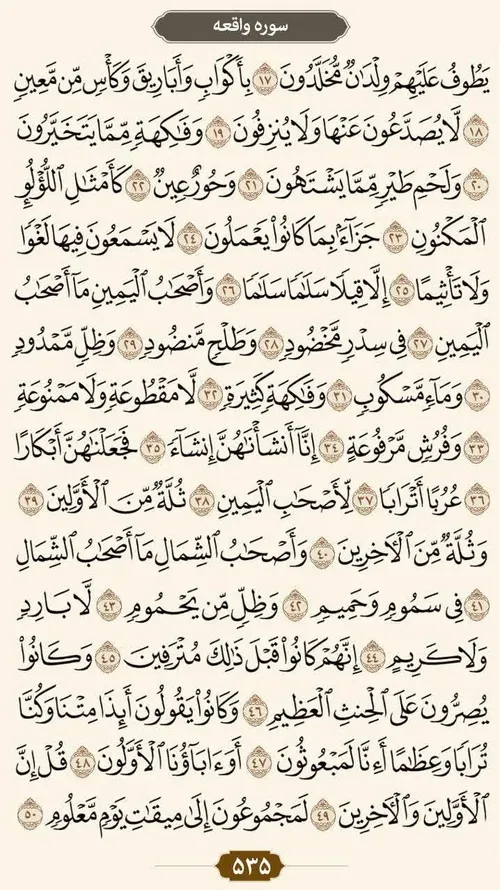 سوره واقعه
يَطُوفُ عَلَيْهِمْ وِلْدَٰنٌ مُّخَلَّدُونَ ١٧ بِأَكْوَابٍ وَأَبَارِيقَ وَكَأْسٍ مِّن مَّعِينٍ
١٨ لَّا يُصَدَّعُونَ عَنْهَا وَلَا يُنزِفُونَ ١٩ وَفَٰكِهَةٍ مِّمَّا يَتَخَيَّرُونَ
٢٠ وَلَحْمِ طَيْرٍ مِّمَّا يَشْتَهُونَ ٢١ وَحُورٌ عِينٌ ٢٢ كَأَمْثَٰلِ اللُّؤْلُؤِ
الْمَكْنُونِ ٢٣ جَزَآءً بِمَا كَانُوا۟ يَعْمَلُونَ ٢٤ لَا يَسْمَعُونَ فِيهَا لَغْوًا
وَلَا تَأْثِيمًا ٢٥ إِلَّا قِيلًا سَلَٰمًا سَلَٰمًا ٢٦ وَأَصْحَٰبُ الْيَمِينِ مَآ أَصْحَٰبُ
الْيَمِينِ ٢٧ فِى سِدْرٍ مَّخْضُودٍ ٢٨ وَطَلْحٍ مَّنضُودٍ ٢٩ وَظِلٍّ مَّمْدُودٍ
٣٠ وَمَآءٍ مَّسْكُوبٍ ٣١ وَفَٰكِهَةٍ كَثِيرَةٍ ٣٢ لَّا مَقْطُوعَةٍ وَلَا مَمْنُوعَةٍ
٣٣ وَفُرُشٍ مَّرْفُوعَةٍ ٣٤ إِنَّآ أَنشَأْنَٰهُنَّ إِنشَآءً ٣٥ فَجَعَلْنَٰهُنَّ أَبْكَارًا
٣٦ عُرُبًا أَتْرَابًا ٣٧ لِّأَصْحَٰبِ الْيَمِينِ ٣٨ ثُلَّةٌ مِّنَ الْأَوَّلِينَ ٣٩
وَثُلَّةٌ مِّنَ الْآخِرِينَ ٤٠ وَأَصْحَٰبُ الشِّمَالِ مَآ أَصْحَٰبُ الشِّمَالِ
٤١ فِى سَمُومٍ وَحَمِيمٍ ٤٢ وَظِلٍّ مِّن يَحْمُومٍ ٤٣ لَّا بَارِدٍ
وَلَا كَرِيمٍ ٤٤ إِنَّهُمْ كَانُوا۟ قَبْلَ ذَٰلِكَ مُتْرَفِينَ ٤٥ وَكَانُوا۟
يُصِرُّونَ عَلَى الْحِنثِ الْعَظِيمِ ٤٦ وَكَانُوا۟ يَقُولُونَ أَئِذَا مِتْنَا وَكُنَّا
تُرَابًا وَعِظَٰمًا أَءِنَّا لَمَبْعُوثُونَ ٤٧ أَوَءَابَآؤُنَا الْأَوَّلُونَ ٤٨ قُلْ إِنَّ
الْأَوَّلِينَ وَالْآخِرِينَ ٤٩ لَمَجْمُوعُونَ إِلَىٰ مِيقَٰتِ يَوْمٍ مَّعْلُومٍ ٥٠
۵۳۵